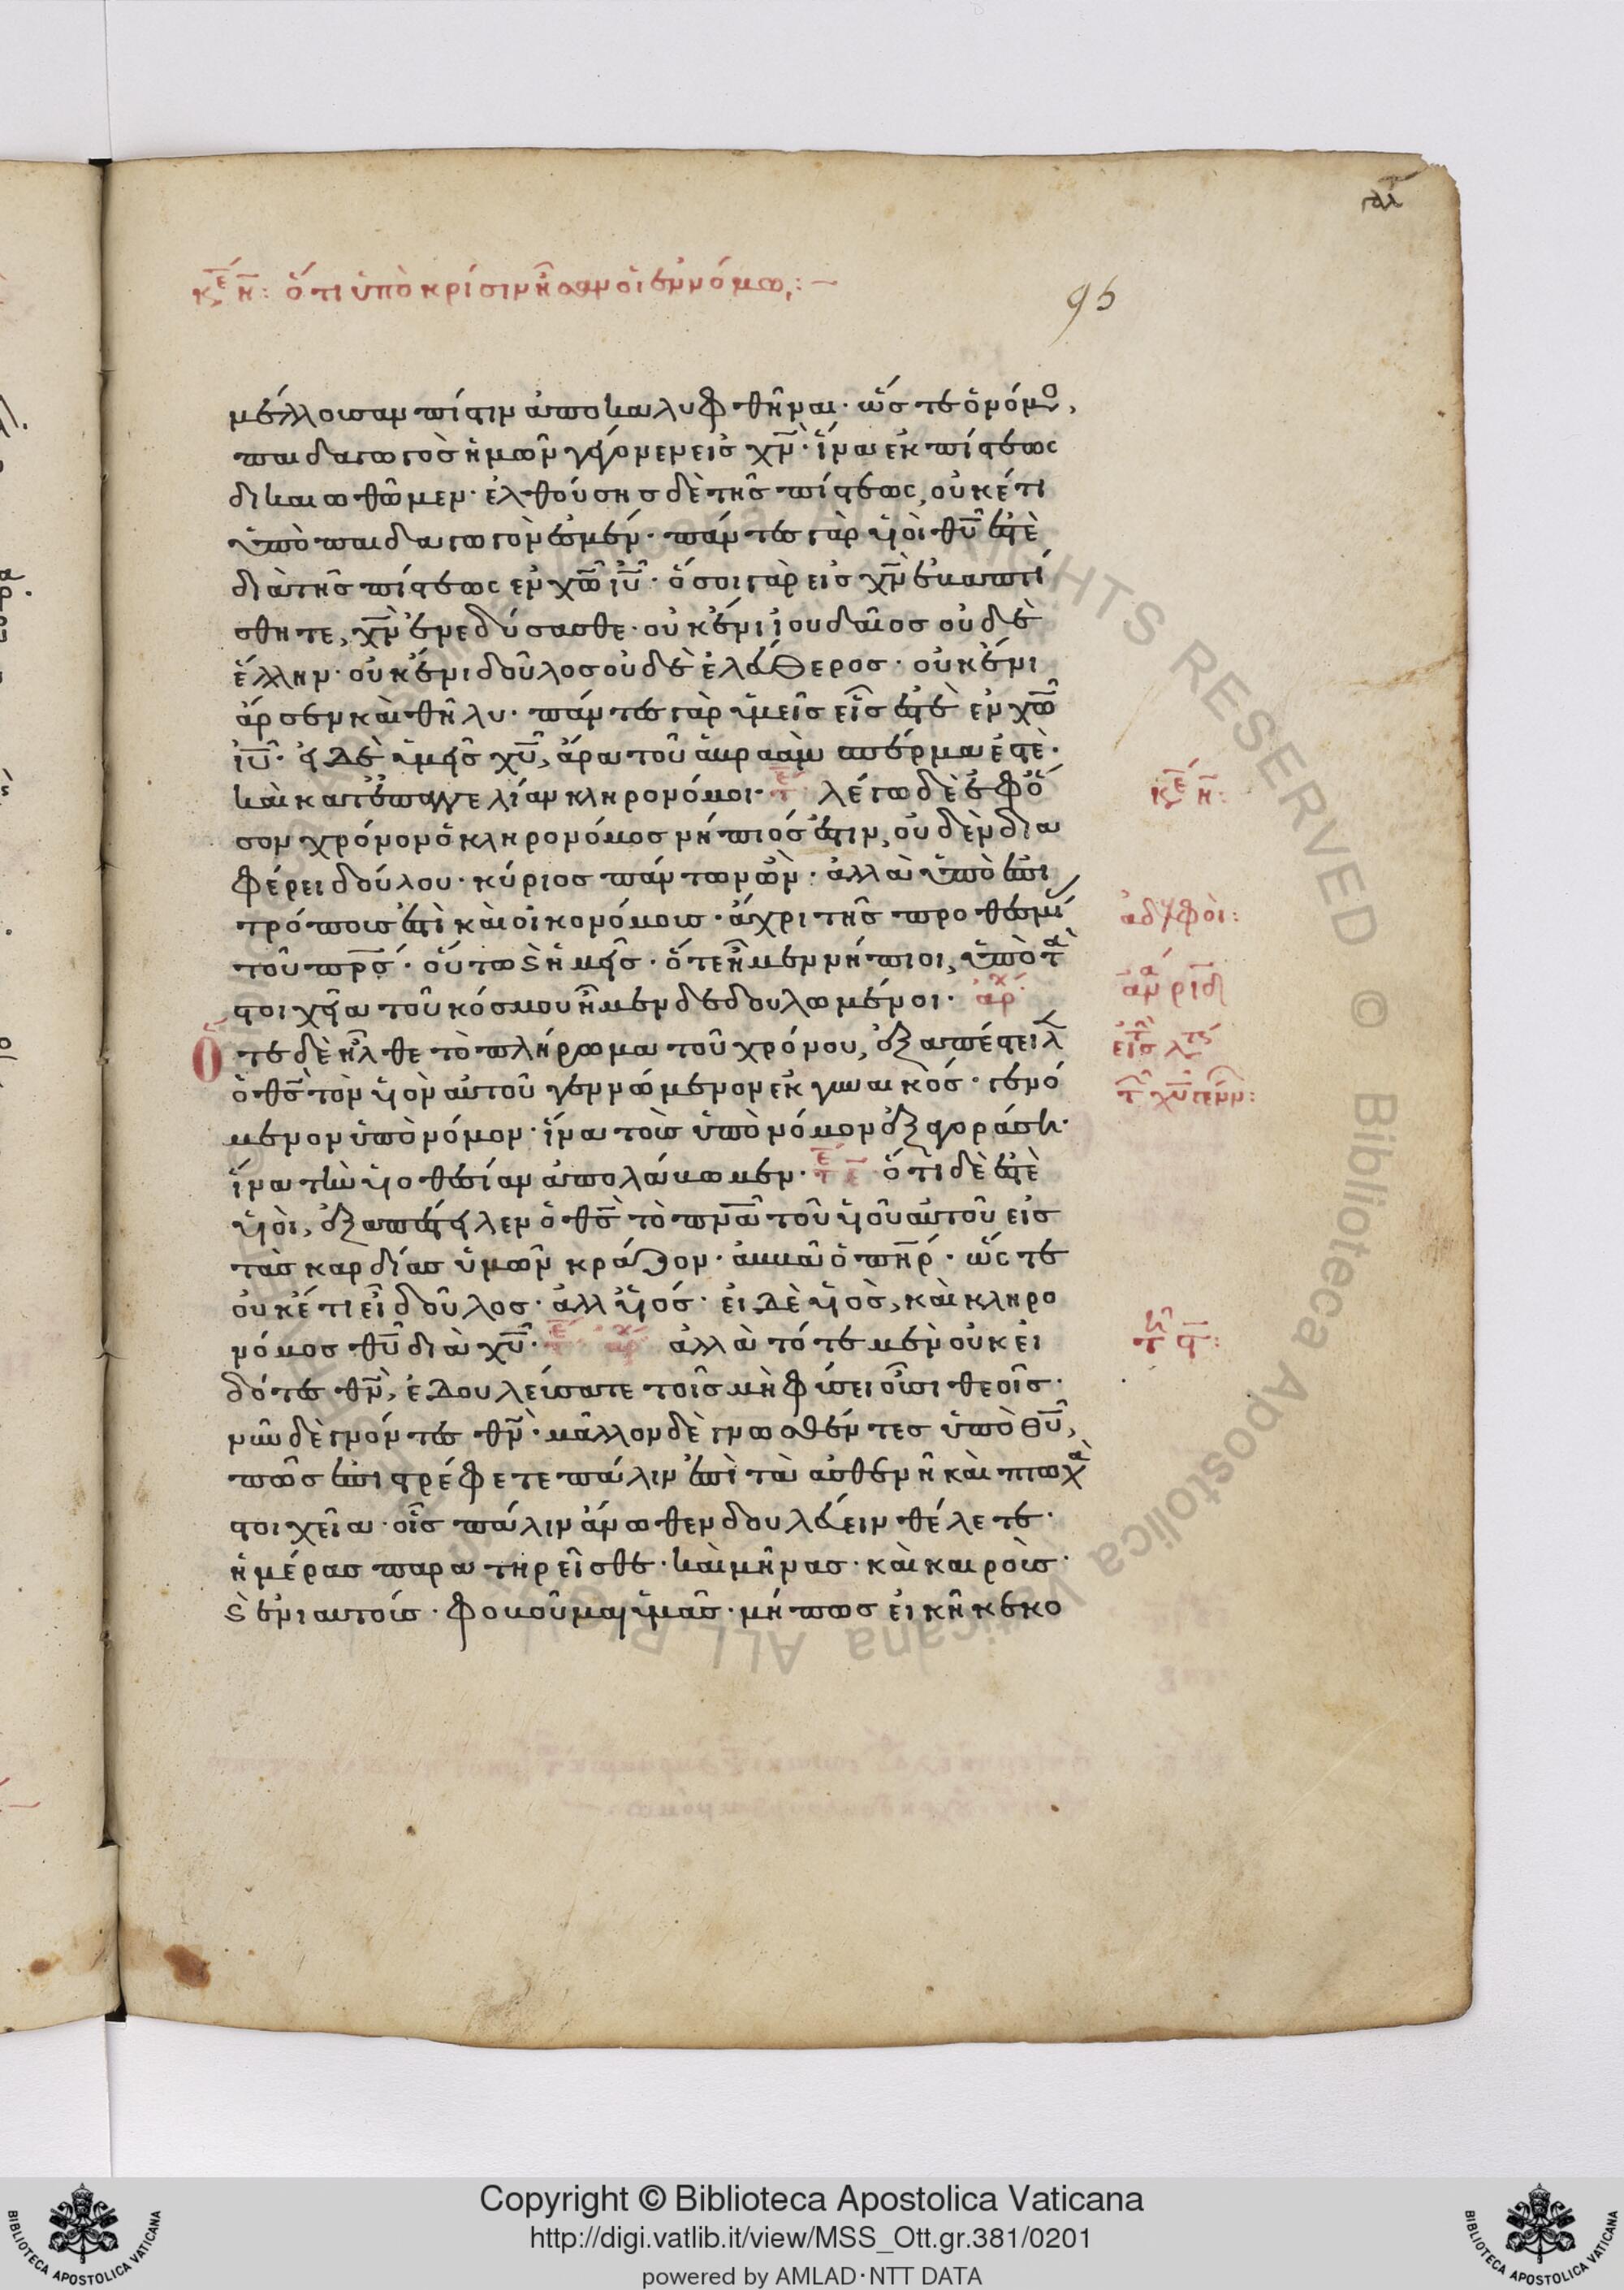 κε η: ὅτι ὑπὸ κρίσιν ἦσαν οἱ ἐν νόμω:
95
μέλλουσαν πίστιν ἀποκαλυφθῆναι· ὥστε ὁ νόμος,
παιδαγωγὸς ἡμῶν γέγονεν εἰς χν· ἵνα ἐκ πίστεως
δικαιωθῶμεν· ἐλθούσης δὲ τῆς πίστεως, οὐκέτι
ὑπὸ παιδαγωγὸν ἐσμέν· πάντες γὰρ υἱοὶ θυ ἐστὲ
διὰ τῆς πίστεως ἐν χω ιυ· ὅσοι γὰρ εἰς χν ἐβαπτί
σθητε, χν ἐνεδύσασθε· οὐκ ἔνι ἰουδαῖος οὐδὲ
ἕλλην· οὐκ ἔνι δοῦλος οὐδὲ ἐλεύθερος· οὐκ ἔνι
ἄρσεν καὶ θῆλυ· πάντες γὰρ ὑμεῖς εἷς ἐστὲ ἐν χω
ιυ· εἰ δὲ ὑμεῖς χυ, ἄρα τοῦ ἀβραὰμ σπέρμα ἐστὲ·
καὶ κατ' ἐπαγγελίαν κληρονόμοι· λέγω δὲ ἐφ' ὅ
σον χρόνον ὁ κληρονόμος νήπιός ἐστιν, οὐδὲν δια
φέρει δούλου· κύριος πάντων ὢν· ἀλλὰ ὑπὸ ἐπι
τρόπους ἐστὶ καὶ οἰκονόμους· ἄχρι τῆς προθεσμί
τοῦ πρς· οὕτω ϛ ἡμεῖς· ὅτε ἦμεν νήπιοι, ὑπὸ τὰ
στοιχεῖα τοῦ κόσμου ἦμεν δεδουλωμένοι· αρχ
Ὅτε δὲ ἦλθε τὸ πλήρωμα τοῦ χρόνου, ἐξαπέστειλ
ὁ θς τὸν υἱὸν αὐτοῦ γεννώμενον ἐκ γυναικός· γενό
μενον ὑπὸ νόμον· ἵνα τοὺς ὑπὸ νόμον ἐξαγοράση·
ἵνα τὴν υἱοθεσίαν ἀπολάβωμεν· ὅτι δὲ ἐστὲ
υἱοὶ, ἐξαπέστειλεν ὁ θς τὸ πνα τοῦ υἱοῦ αὐτοῦ εἰς
τὰς καρδίας ὑμῶν κράζον· ἀββᾶ ὁ πηρ· ὥστε
οὐκέτι εἶ δοῦλος· ἀλλ' υἱός· εἰ δὲ υἱὸς, καὶ κληρο
νόμος θυ διὰ χυ· ἀλλὰ τότε μὲν οὐκ εἰ
δότες θν, ἐδουλεύσατε τοῖς μὴ φύσει οὖσι θεοῖς·
νῦν δὲ γνόντες θν· μᾶλλον δὲ γνωσθέντες ὑπὸ θυ,
πῶς ἐπιστρέφετε πάλιν ἐπὶ τὰ ἀσθενῆ καὶ πτωχὰ
στοιχεῖα· οἷς πάλιν ἄνωθεν δουλεύειν θέλετε·
ἡμέρας παρατηρεῖσθε· καὶ μῆνας· καὶ καιροὺς·
ϛ ἐνιαυτούς· φοβοῦμαι ὑμᾶς· μήπως εἰκῆ κεκο
κε η:
ἀδελφοὶ:
Copyright © Biblioteca Apostolica Vaticana
http://digi.vatlib.it/view/MSS_Ott.gr.381/0201
powered by AMLAD·NTT DATA
BIBLIOTECA APOSTOLICA VATICANA
BIBLIOTECA APOSTOLICA VATICANA